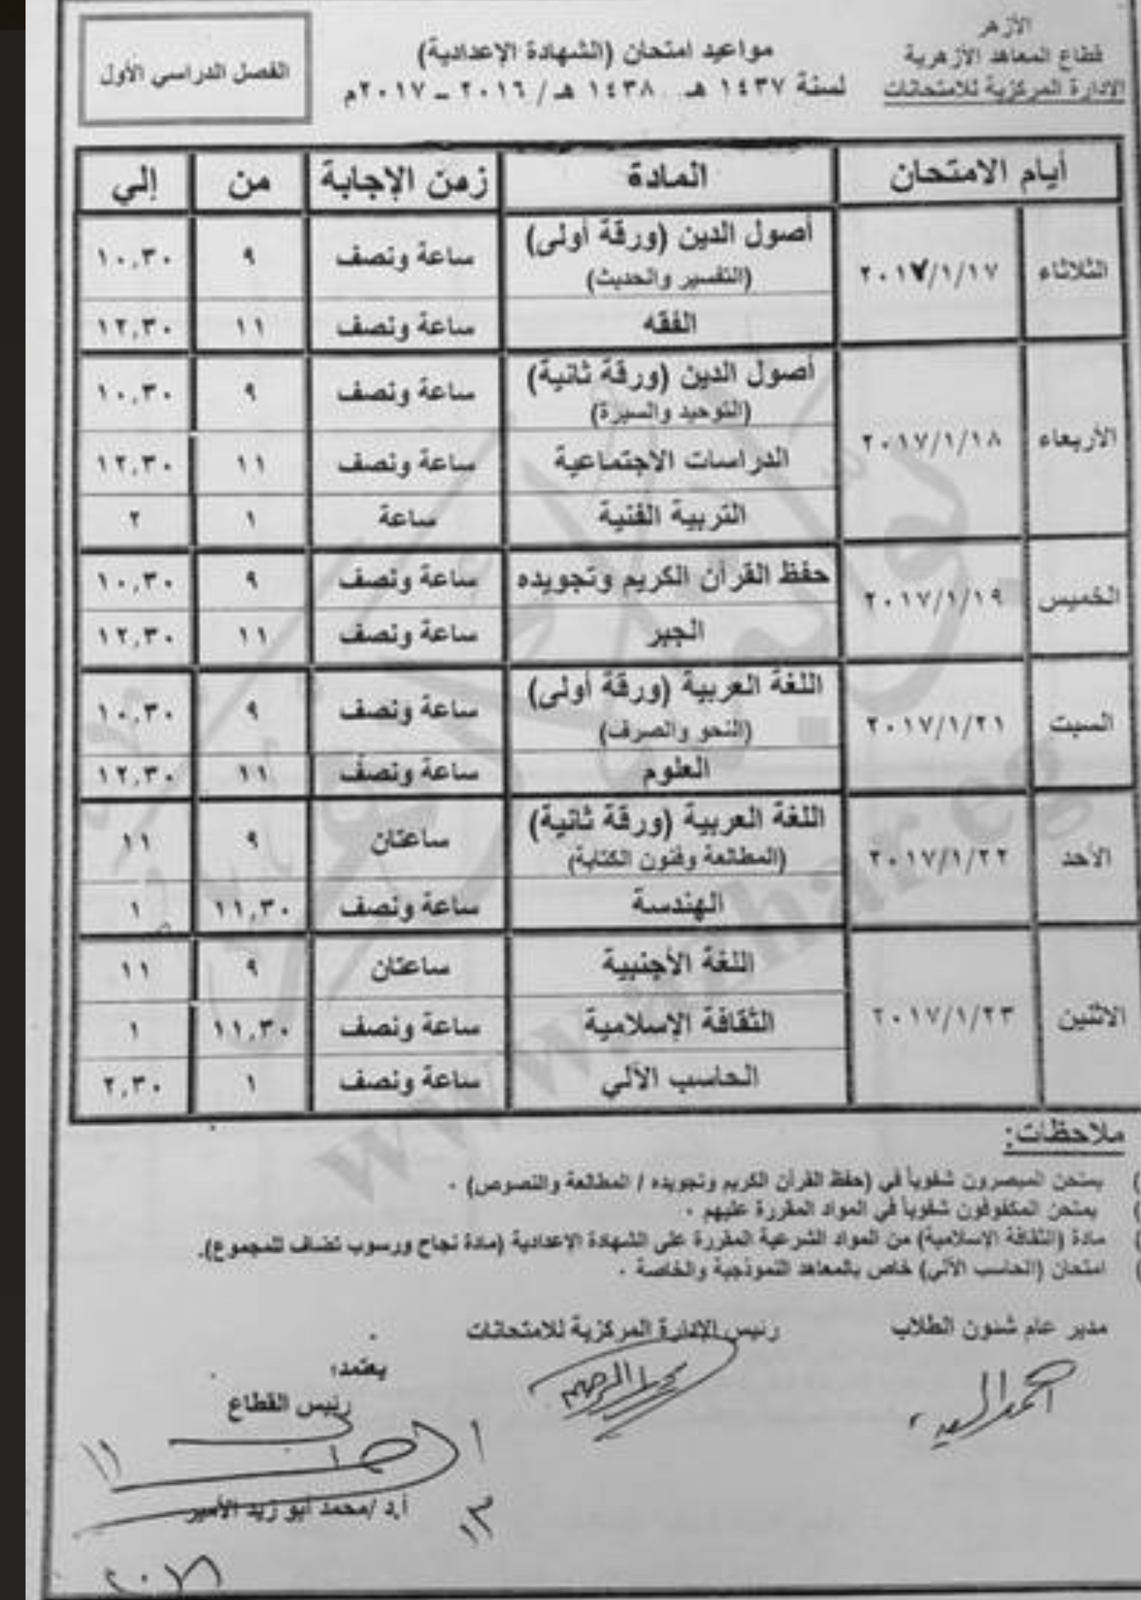 الأزهر
قطاع المعاهد الأزهرية
الإدارة المركزية للامتحانات
مواعيد امتحان (الشهادة الإعدادية)
لسنة ١٤٣٧ هـ ١٤٣٨ هـ / ٢٠١٦ - ٢٠١٧م
الفصل الدراسي الأول
أيام الامتحان المادة زمن الإجابة من إلي
الثلاثاء ٢٠١٧/١/١٧ أصول الدين (ورقة أولى) (التفسير والحديث) ساعة ونصف ٩ ١٠,٣٠
الفقه ساعة ونصف ١١ ١٢,٣٠
الأربعاء ٢٠١٧/١/١٨ أصول الدين (ورقة ثانية) (التوحيد والسيرة) ساعة ونصف ٩ ١٠,٣٠
الدراسات الاجتماعية ساعة ونصف ١١ ١٢,٣٠
التربية الفنية ساعة ١ ٢
الخميس ٢٠١٧/١/١٩ حفظ القرآن الكريم وتجويده ساعة ونصف ٩ ١٠,٣٠
الجبر ساعة ونصف ١١ ١٢,٣٠
السبت ٢٠١٧/١/٢١ اللغة العربية (ورقة أولى) (النحو والصرف) ساعة ونصف ٩ ١٠,٣٠
العلوم ساعة ونصف ١١ ١٢,٣٠
الأحد ٢٠١٧/١/٢٢ اللغة العربية (ورقة ثانية) (المطالعة وفنون الكتابة) ساعتان ٩ ١١
الهندسة ساعة ونصف ١١,٣٠ ١
الاثنين ٢٠١٧/١/٢٣ اللغة الأجنبية ساعتان ٩ ١١
الثقافة الإسلامية ساعة ونصف ١١,٣٠ ١
الحاسب الآلي ساعة ونصف ١ ٢,٣٠
ملاحظات:
يمتحن المبصرون شفوياً في (حفظ القرآن الكريم وتجويده / المطالعة والنصوص) .
يمتحن المكفوفون شفوياً في المواد المقررة عليهم .
مادة (الثقافة الإسلامية) من المواد الشرعية المقررة على الشهادة الإعدادية (مادة نجاح ورسوب تضاف للمجموع).
امتحان (الحاسب الآلي) خاص بالمعاهد النموذجية والخاصة .
مدير عام شئون الطلاب
رئيس الإدارة المركزية للامتحانات
يعتمد،
رئيس القطاع
أ.د /محمد أبو زيد الأمير